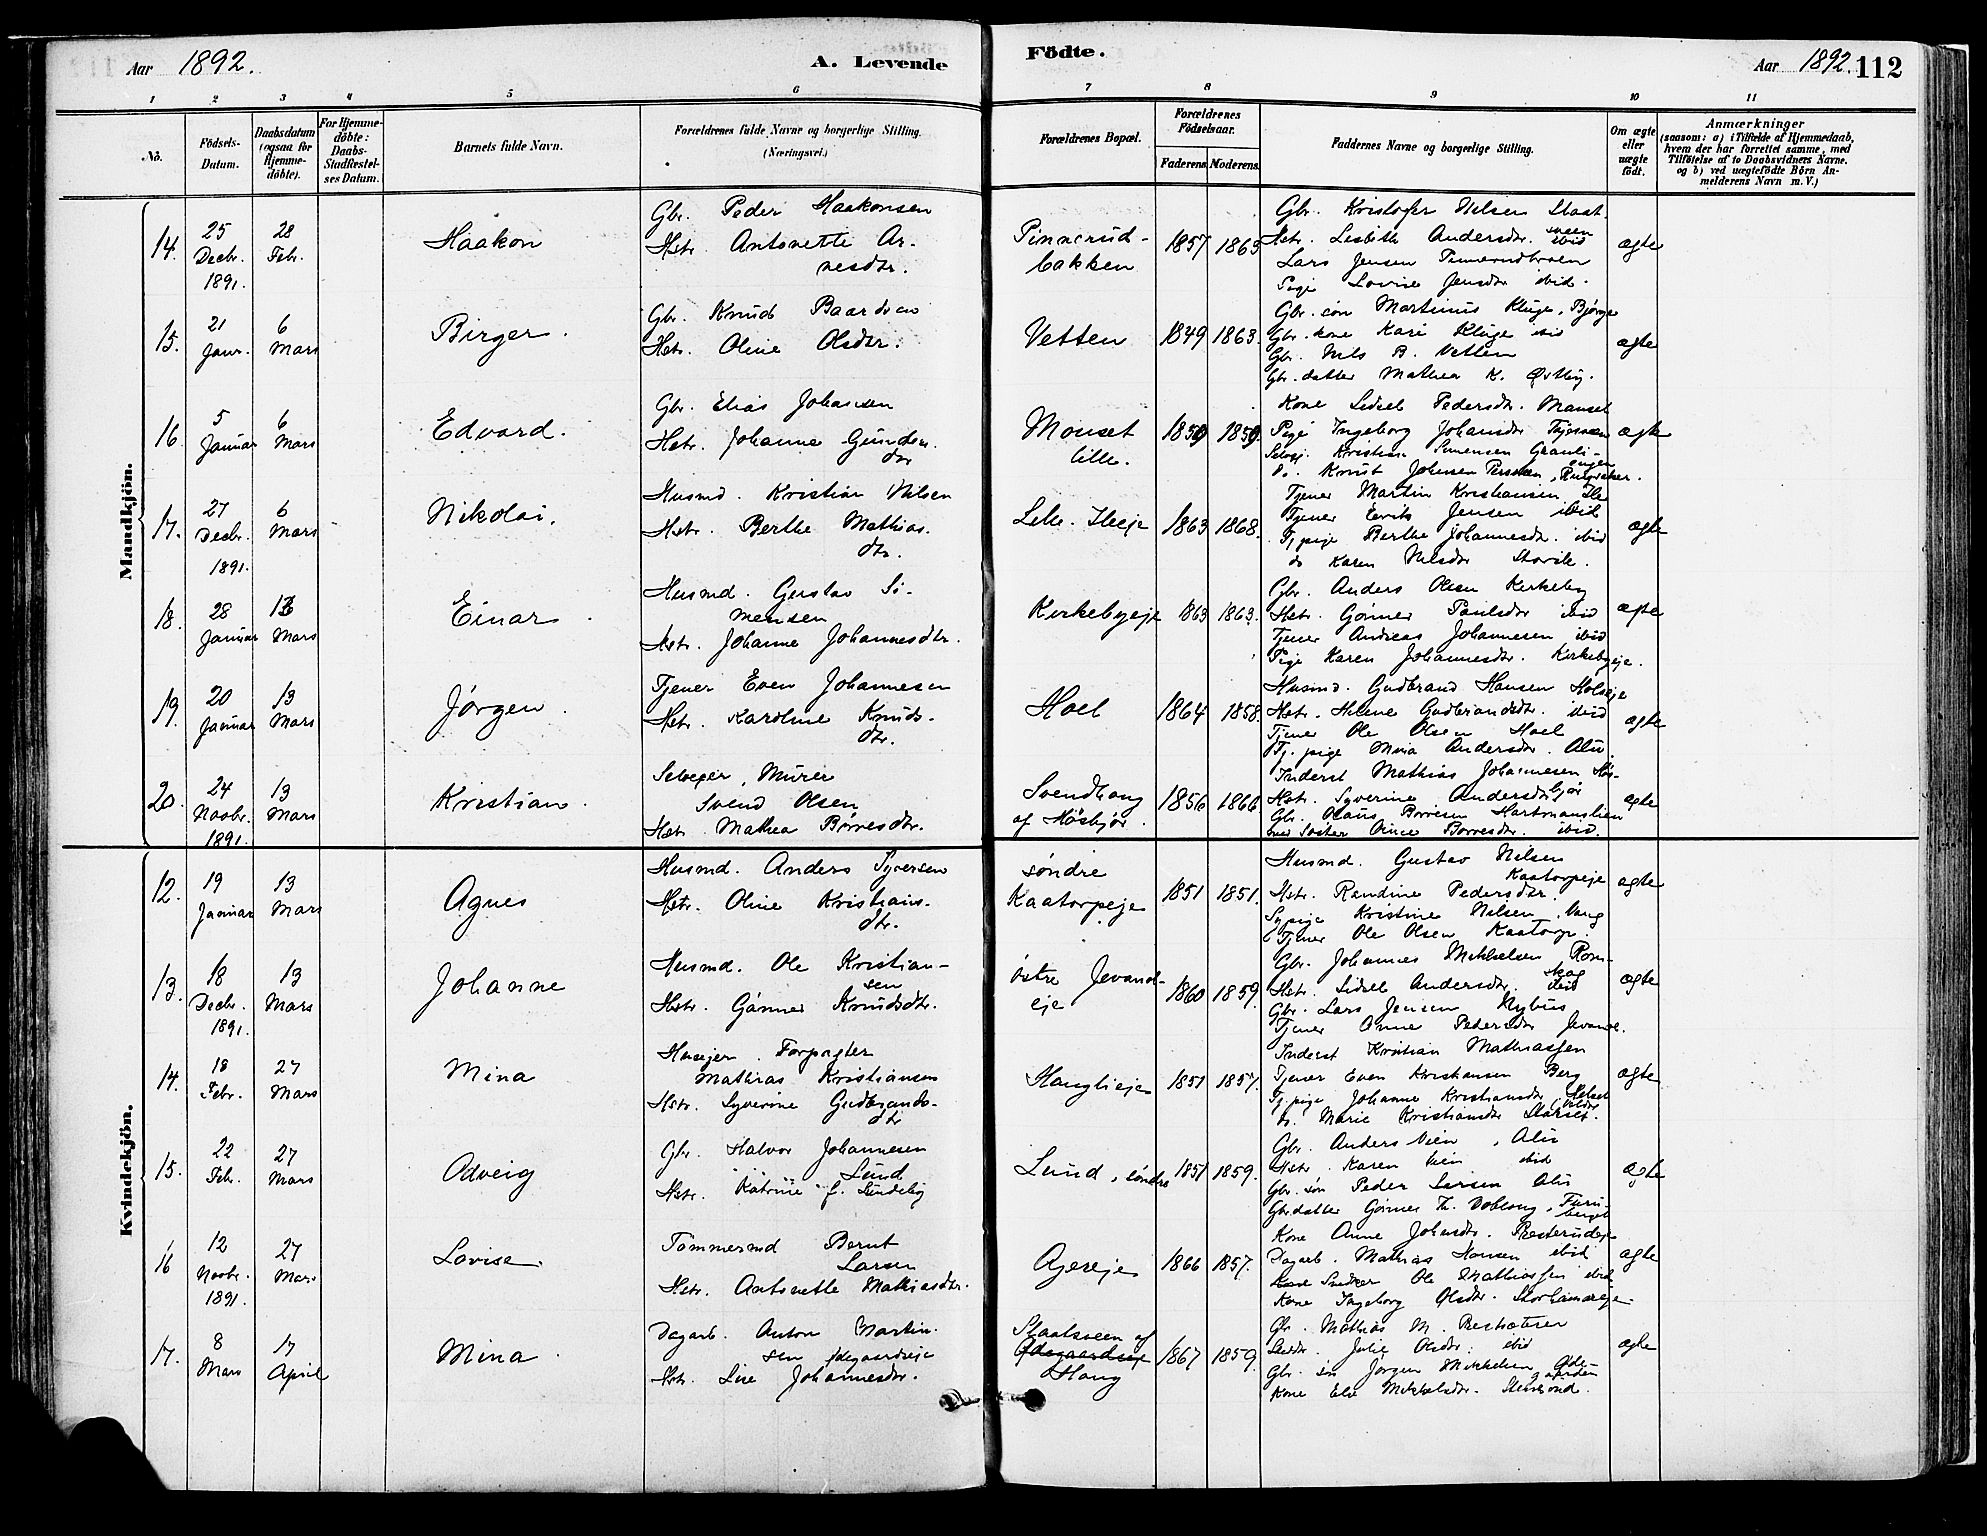 Aar 1892.
A. Levende
Födte.
Aar 1892. 112
1 2 3 4 5 6 7 8 9 10 11
Nó.
Födsels-Datum.
Daabsdatum (ogsaa för Hjemme-döbte).
For Hjemme-döbte: Daabs-Stadfæstel-ses Datum.
Barnets fulde Navn.
Forældrenes fulde Navne og borgerlige Stilling.
(Næringsvei.)
Forældrenes Bopæl.
Forældrenes Födselsaar.
Faderens. Moderens.
Faddernes Navne og borgerlige Stilling.
Om ægte eller uægte födt.
Anmærkninger
(saasom: a) i Tilfælde af Hjemmedaab,
hvem der har forrettet samme, med
Tilföielse af to Daabsvidners Navne.
og b) ved uægtefödte Börn An-
melderens Navn m. V.)
Mandkjön.
14. 25 Decbr. 1891. 28 Febr. Haakon
Gbr. Peder Haakonsen
Hstr. Antonette Ar-
nesdtr.
Pinnerud-
bakken
1857 1863
Gbr. Kristofer Nilsen Staat
sveen
Hstr. Lisbeth Andersdtr. ibid
Lars Jensen
Pige Lovise Jensdtr ibid.
ægte
15. 21 Janr. 6 Mars Birger.
Gbr. Knud Baardsen
Hstr. Oline Olsdtr.
Vetten
1849 1863.
Gbr. søn Martinus Kluge, Bjørge
Gbr. kone Kari Kluge ibid
Gbr. Nils B. Vetten
Gbr. datter Mathea K. Østby.
ægte
16. 5 Januar 6 Mars Edvard.
Gbr. Elias Johansen
Hstr. Johanne Gunders.
dtr
Monset
lille.
1850 1859.
Kone Sidsel Pedersdr. Manset
Pige Ingeborg Johansdtr
Selvej. Kristian Simensen Grauli-
engen
do. Knut Johnsen
ægte
17. 27 Decbr. 1891. 6 Mars Nikolai.
Husmd. Kristian Nilsen
Hstr. Berthe Mathias.
dtr.
Lille. Ileeje
1863 1868.
Tjener Martin Kristiansen. Ile
Tjener Enrik Jensen ibid
Tj.pige Berthe Johannesdtr. ibid
do Karen Nilsdtr Storile.
ægte
18. 28 Januar 13 Mars Einar.
Husmd. Gustav Si-
mensen
Hstr. Johanne Johannesdtr.
Kirkebyeje
1863 1863.
Gbr. Anders Olsen Kirkeby
Hstr. Gønner Paulsdtr ibid
Tjener Andreas Johannesen ibid
Pige Karen Johannesdtr. Kirkebyeje.
ægte
19. 20 Januar 13 Mars Jørgen.
Tjener Even Johannesen
Hstr. Karoline Knuds-
dtr.
Hoel
1864 1858.
Husmd. Gudbrand Hansen Holseje
Hstr. Helene Gudbrandsdtr. ibid
Tjener Ole Olsen Hoel
Tj. pige Mina Andersdtr. Alu.
ægte
20. 24 Novbr. 1891. 13 Mars Kristian.
Selvejer, Murer
Svend Olsen
Hstr. Mathea Børresdtr.
Svendhaug
af Høsbjør.
1856 1866
Inderst Mathias Johannesen Høs-
bjør
Hstr. Syverine Andersdtr
Gbr. Olaus Børresen Hartmanslien
med Søster Oline Børresdtr. ibid.
ægte
Kvindekjön.
12. 19 Januar 13 Mars Agnes
Husmd. Anders Syversen
Hstr. Oline Kristians-
dtr.
søndre
Kaatorpeje
1851 1851.
Husmd. Gustav Nilsen
Kaatorpeje
Hstr. Randine Pedersdtr.
Sypige Kristine Nilsen, Vang
Tjener Ole Olsen Kaatorp.
ægte
13. 18 Decbr. 1891. 13 Mars Johanne
Husmd. Ole Kristian-
sen
Hstr. Gønner Knudsdtr.
østre Jevand-
eje
1860 1859.
Gbr. Johannes Mikkelsen Rom-
skog
Hstr. Sidsel Andersdtr. ibid
Gbr. Lars Jensen Nyhus
Tjener Anne Pedersdtr Jevane.
ægte
14. 18 Febr. 27 Mars Mina
Husejer. Forpagter
Mathias Kristiansen
Hstr. Syverine Gudbrands-
dtr
Hauglieje
1851 1857.
Inderst Kristian Mathiassen
Tjener Even Kristiansen Berg
Tj. pige Johanne Kristiansdtr
do. Marie Kristiansdtr Storset.
ægte
15. 22 Febr. 27 Mars Odveig
Gbr. Halvor Johannesen
Lund
Hstr. Katrine f. Sundeby
Lund, søndre
1851 1859.
Gbr. Anders Vien, Alu
Hstr. Karen Vien ibid
Gbr. søn Peder Larsen Alu
Gbr.datter Gønner Th. Dobloug, Furu-
berget
ægte
16 12 Novbr. 1891. 27 Mars Lovise.
Tømmermd Bernt
Larsen
Hstr. Antonette Mathiasdtr.
Agereje
1866 1857.
Kone Anne Johansdtr. Presterudeje
Dagarb. Mathias Hansen ibid
Snedker Ole Mathiassen ibid
Kone Ingeborg Olsdtr. Storhamareje.
ægte
17. 8 Mars 17 April Mina.
Dagarb. Anton Martin.
sen Ødegaardseje
Hstr. Lise Johannesdtr.
Staatsveen af
Ødegaardseje
Haug
1867 1859.
Gbr. Mathias M.
Søster. Julie Olsdtr. ibid
Gbr. søn Jørgen Mikkelsen Øde-
gaarden
Kone Else Mikkelsdtr. Stensrud.
ægte